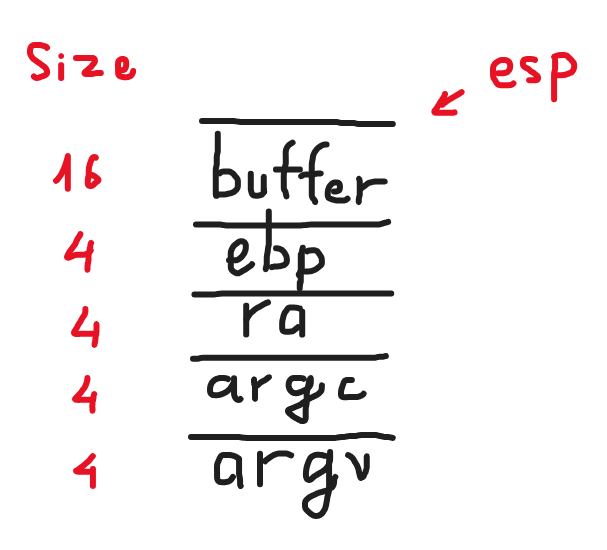 Size
esp
16 buffer
4 ebp
4 ra
4 argc
4 argv